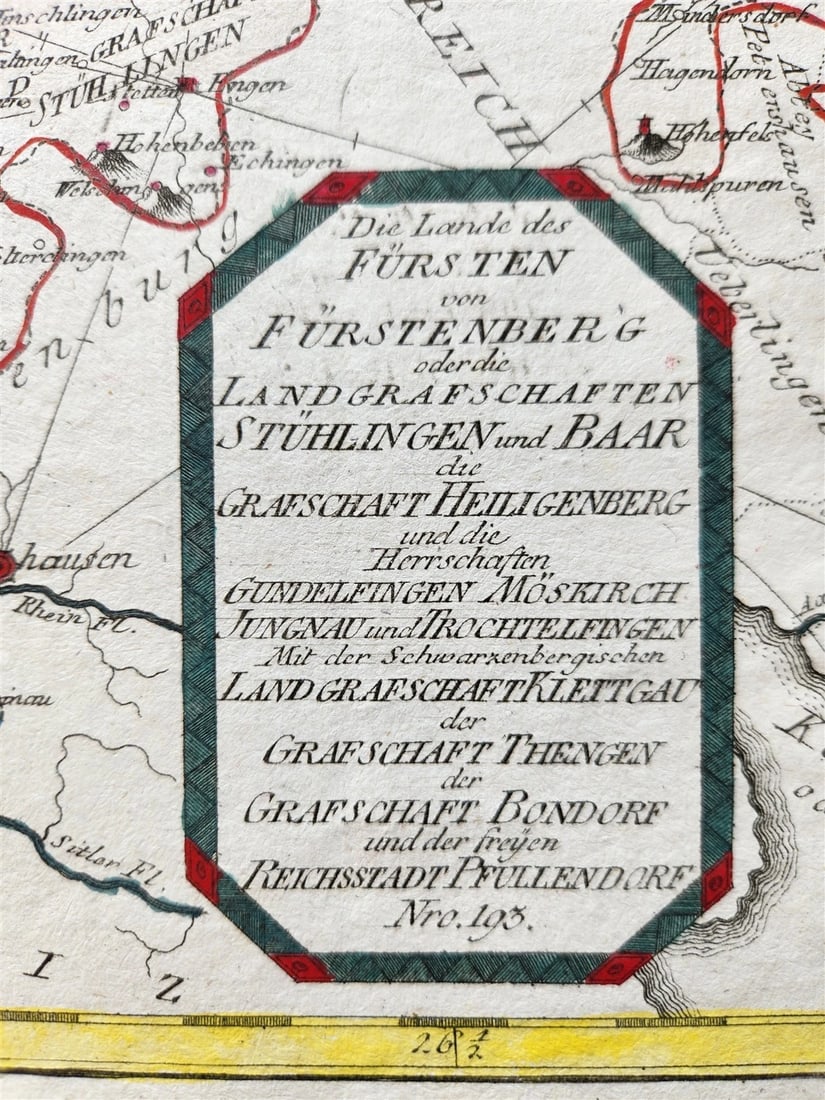 GRAFSCHAF
STÜHLINGEN
Engen
Stetten
Hohenbeben
Echingen
REICH
Mindersdorf
Hagendorn
Hohenfels
Mühlspuren
Abtey
Petershausen
Ueberlingen
Die Lande des
FÜRSTEN
von
FÜRSTENBERG
oder die
LANDGRAFSCHAFTEN
STÜHLINGEN und BAAR
die
GRAFSCHAFT HEILIGENBERG
und die
Herrschaften
GUNDELFINGEN MÖSKIRCH
JUNGNAU und TROCHTELFINGEN
Mit der Schwarzenbergischen
LANDGRAFSCHAFT KLETTGAU
der
GRAFSCHAFT THENGEN
der
GRAFSCHAFT BONDORF
und der freÿen
REICHSSTADT PFULLENDORF
Nro. 193.
hausen
Rhein Fl.
Sitler Fl.
I Z
26 1/2